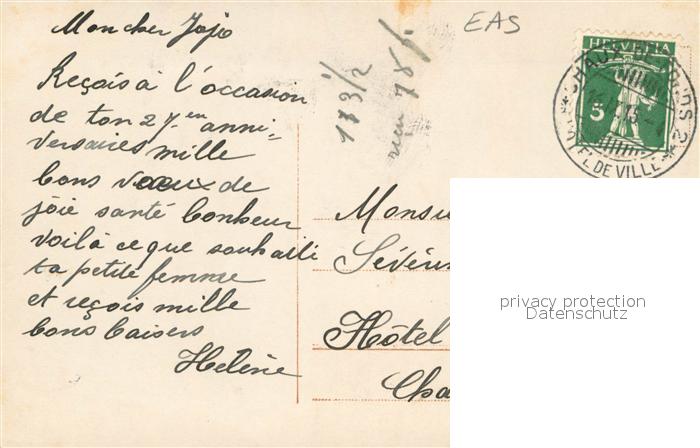 Mon cher Jojo
Reçois à l'occasion
de ton 27-em anni-
versaires mille
bons voeux de
joie santé bonheur
voilà ce que souhaitti
ta petite femme
et reçois mille
bons baisers
Helène
173 1/2
EAS
HELVETIA
5
CHAUX-DE-FONDS 2
DE VILLE
Monsieu
Séverin
Hôtel
Cha
privacy protection
Datenschutz